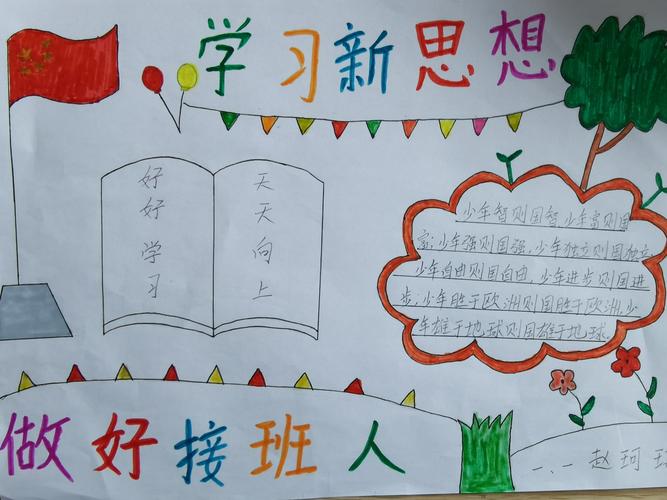 学习新思想
好好学习
天天向上
少年智则国智,少年富则国
富;少年强则国强,少年独立则国独立
少年自由则国自由,少年进步则国进
步;少年胜于欧洲则国胜于欧洲,少
年雄于地球则国雄于地球。
做好接班人
一.一 赵珂